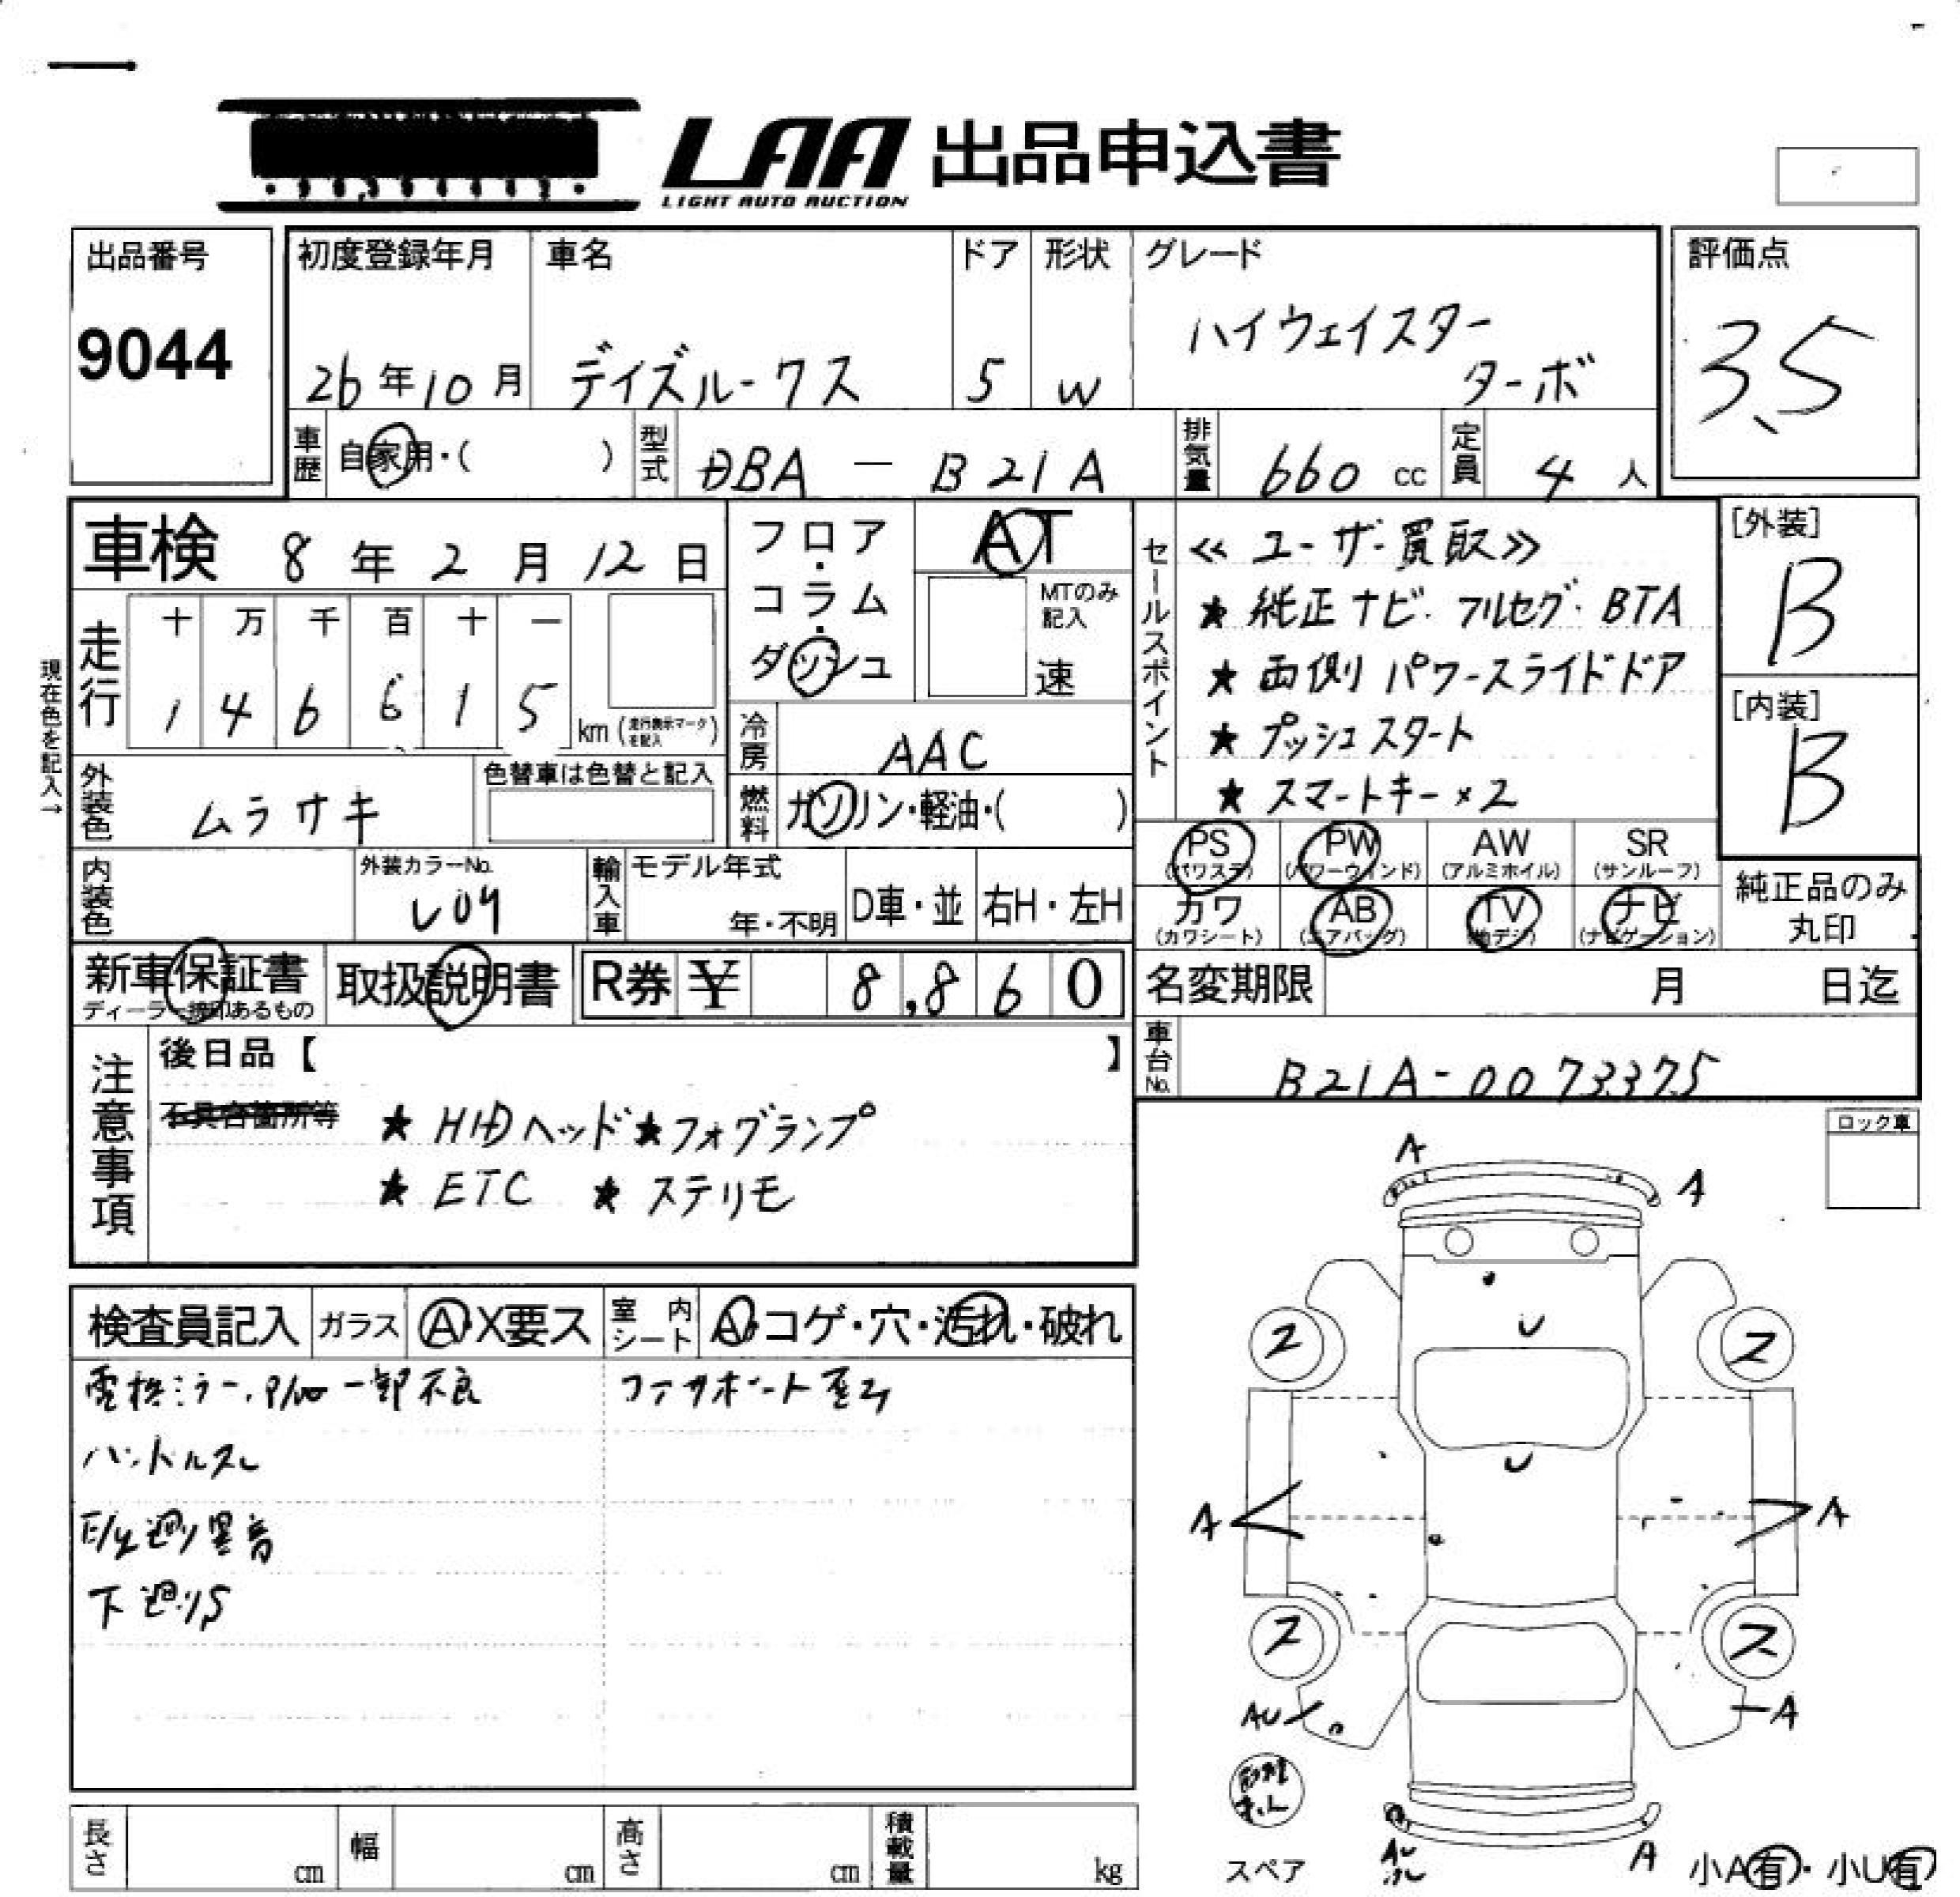 LAA 出品申込書
LIGHT AUTO AUCTION
出品番号
9044
初度登録年月
26年10月
車名
デイズルークス
ドア
5
形状
W
グレード
ハイウェイスター
ターボ
評価点
3.5
車歴
自家用・( )
型式
DBA - B21A
排気量
660 cc
定員
4 人
車検 8年2月12日
フロア・コラム・ダッシュ
AT
MTのみ記入
速
セールスポイント
≪ユーザー買取≫
★ 純正ナビ・フルセグ・BTA
★ 両側パワースライドドア
★ プッシュスタート
★ スマートキー×2
[外装]
B
[内装]
B
現在色を記入→
走行
十 万 千 百 十 一
1 4 6 6 1 5 km (走行表示マークを記入)
冷房
AAC
外装色
ムラサキ
色替車は色替と記入
燃料
ガソリン・軽油・( )
PS (パワステ)
PW (パワーウインド)
AW (アルミホイル)
SR (サンルーフ)
カワ (カワシート)
AB (エアバッグ)
TV (地デジ)
ナビ (ナビゲーション)
純正品のみ
丸印
内装色
外装カラーNo.
L09
輸入車
モデル年式
年・不明
D車・並
右H・左H
新車保証書
ディーラー捺印あるもの
取扱説明書
R券 ¥ 8,860
名変期限 月 日迄
車台No.
B21A-0073375
注意事項
後日品【 】
不具合箇所等
★ HIDヘッド ★フォグランプ
★ ETC ★ ステリモ
ロック車
検査員記入
ガラス
A・X要ス
室内シート
A・コゲ・穴・汚れ・破れ
電格ミラー,P/W一部不良
ハンドルスレ
E/g廻り異音
下廻りS
A
A
U
ス
ス
U
A
A
ス
ス
AU
A
スペア
AU
A
小A有・小U有
長さ cm
幅 cm
高さ cm
積載量 kg